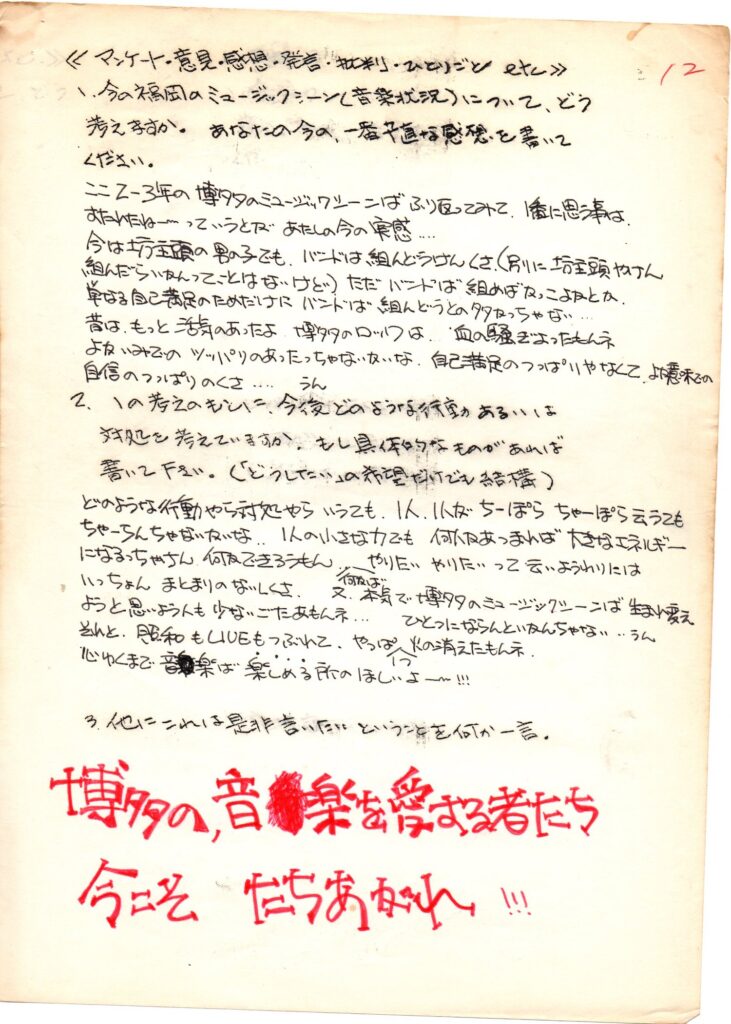 ≪アンケート・意見・感想・発言・批判・ひとりごと etc≫
12
1.今の福岡のミュージックシーン(音楽状況)について、どう
考えますか。あなたの今の、一番率直な感想を書いて
ください。
ここ2~3年の博多のミュージックシーンばふり返ってみて、1番に思う事は、
すたれたねー…っていうとが あたしの今の実感....
今は坊主頭の男の子でも、バンドば組んどうけんくさ、(別に坊主頭やけん
組んだらいかんってことはないけど) ただバンドば組めばかっこよかとか、
単なる自己満足のためだけに バンドば 組んどうとの多かっちゃない…
昔は、もっと活気のあったよ 博多のロックは、血の騒ぎよったもんネ
よかいみでの ツッパリのあったっちゃないかいな、自己満足のつっぱりやなくて、よか意味での
自信のつっぱりのくさ.... うん
2. 1の考えのもとに、今後どのような行動あるいは
対処を考えていますか。もし具体的なものがあれば
書いて下さい。(「どうしたい」の希望だけでも結構)
どのような行動やら対処やら いうても、1人、1人が ちーぽら ちゃーぽら云うても
ちゃーらんちゃないかいな.. 1人の小さな力でも 何人かあつまれば 大きなエネルギー
になるっちゃさん 何かできろうもん、やりたい やりたい って 云いようわりには
何かば
いっちょん まとまりのないしくさ、又、本気で博多のミュージックシーンば 生まれ変え
ようと思いようんも 少ないごたあもんネ... ひとつにならんといかんちゃない..うん
それと、昭和もLIVEもつぶれて、やっぱ1つ火の消えたもんネ、
心ゆくまで 音楽ば 楽しめる所のほしいよー!!!
3.他にこれは是非言いたい ということを何か一言。
博多の、音楽を愛する者たち
今こそ たちあがれ!!!